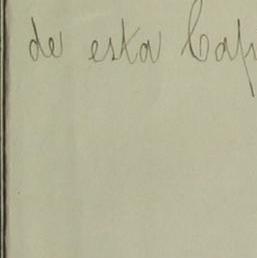 de esta Cap